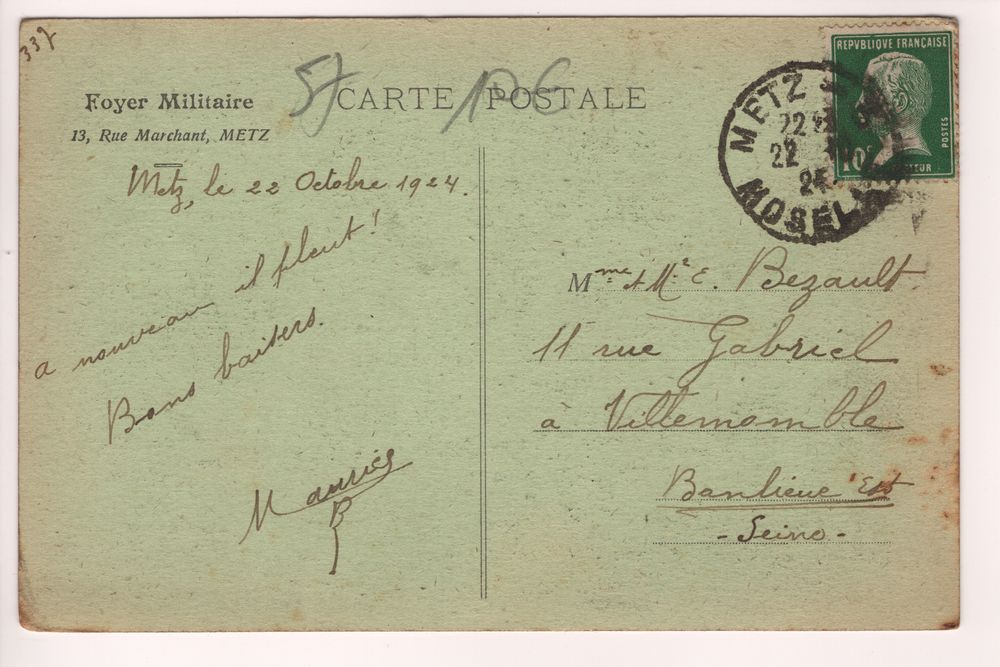 337
57
106
CARTE POSTALE
Foyer Militaire
13, Rue Marchant, METZ
Metz, le 22 Octobre 1924.
a nouveau il pleut!
Bons baisers.
Maurice
B
REPVBLIQVE FRANÇAISE
POSTES
10c
METZ
22
24
MOSELLE
Mme et Mr E. Bezault
11 rue Gabriel
à Villemomble
Banlieue Est
- Seine -